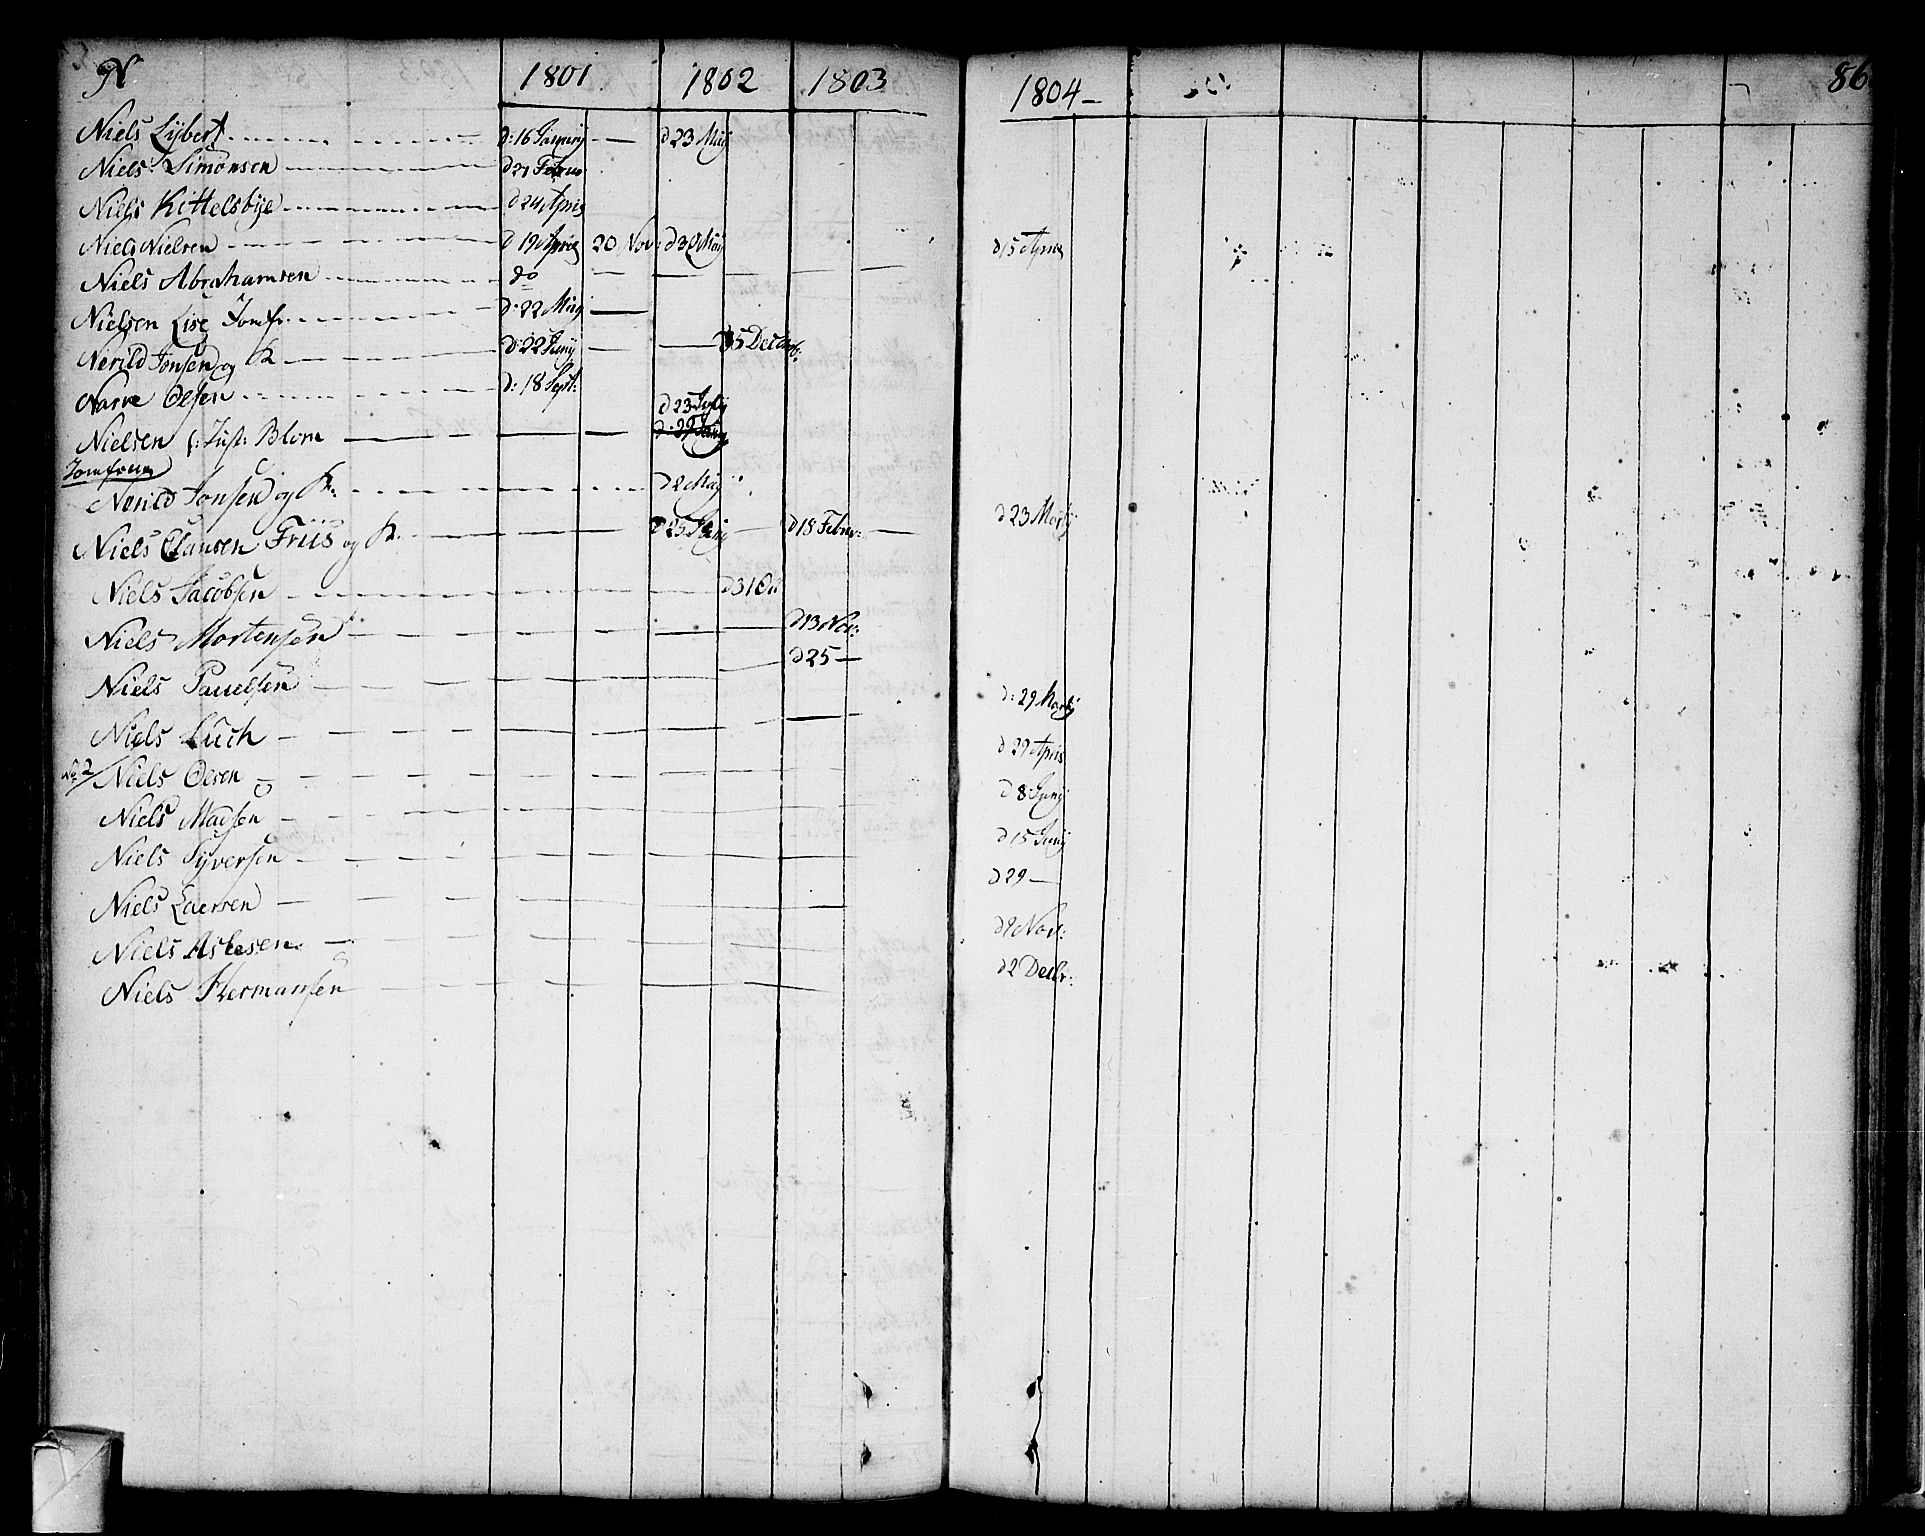 N 1801 1802 1803 1804 86
Niels Lybert d: 16 Januarij d 23 Maij
Niels Simonsen d 21 Februar
Niels Kittelsbye d 24 April
Niels Nielsen d 19 April 20 Nov: d 30 Maij d 15 April
Niels Abrahamsen do
Nielsen Lise Jomfr. d: 22 Maij
Nerild Jonsen og K d: 22 Junij 5 Decemb:
Narve Olsen d: 18 Sept:
d 23 July
Nielsen (: Just: Blom d: 29
Jomfrue
Nerild Jonsen og K: d 2 Maij
Niels Clausen Friis og K. d 25 Junij d 18 Febru: d 23 Martij
Niels Jacobsen d 31 Oct
Niels Mortensen d 13 Nov:
Niels Pauelsen d 25 —
Niels Luch d: 29 Martij
No 2/ Niels Olsen d 29 April
Niels Madsen d 8 Junij
Niels Syversen d 15 Junij
Niels Larsen d 29 —
Niels Aslesen d 9 Nov:
Niels Hermansen d 2 Decbr: